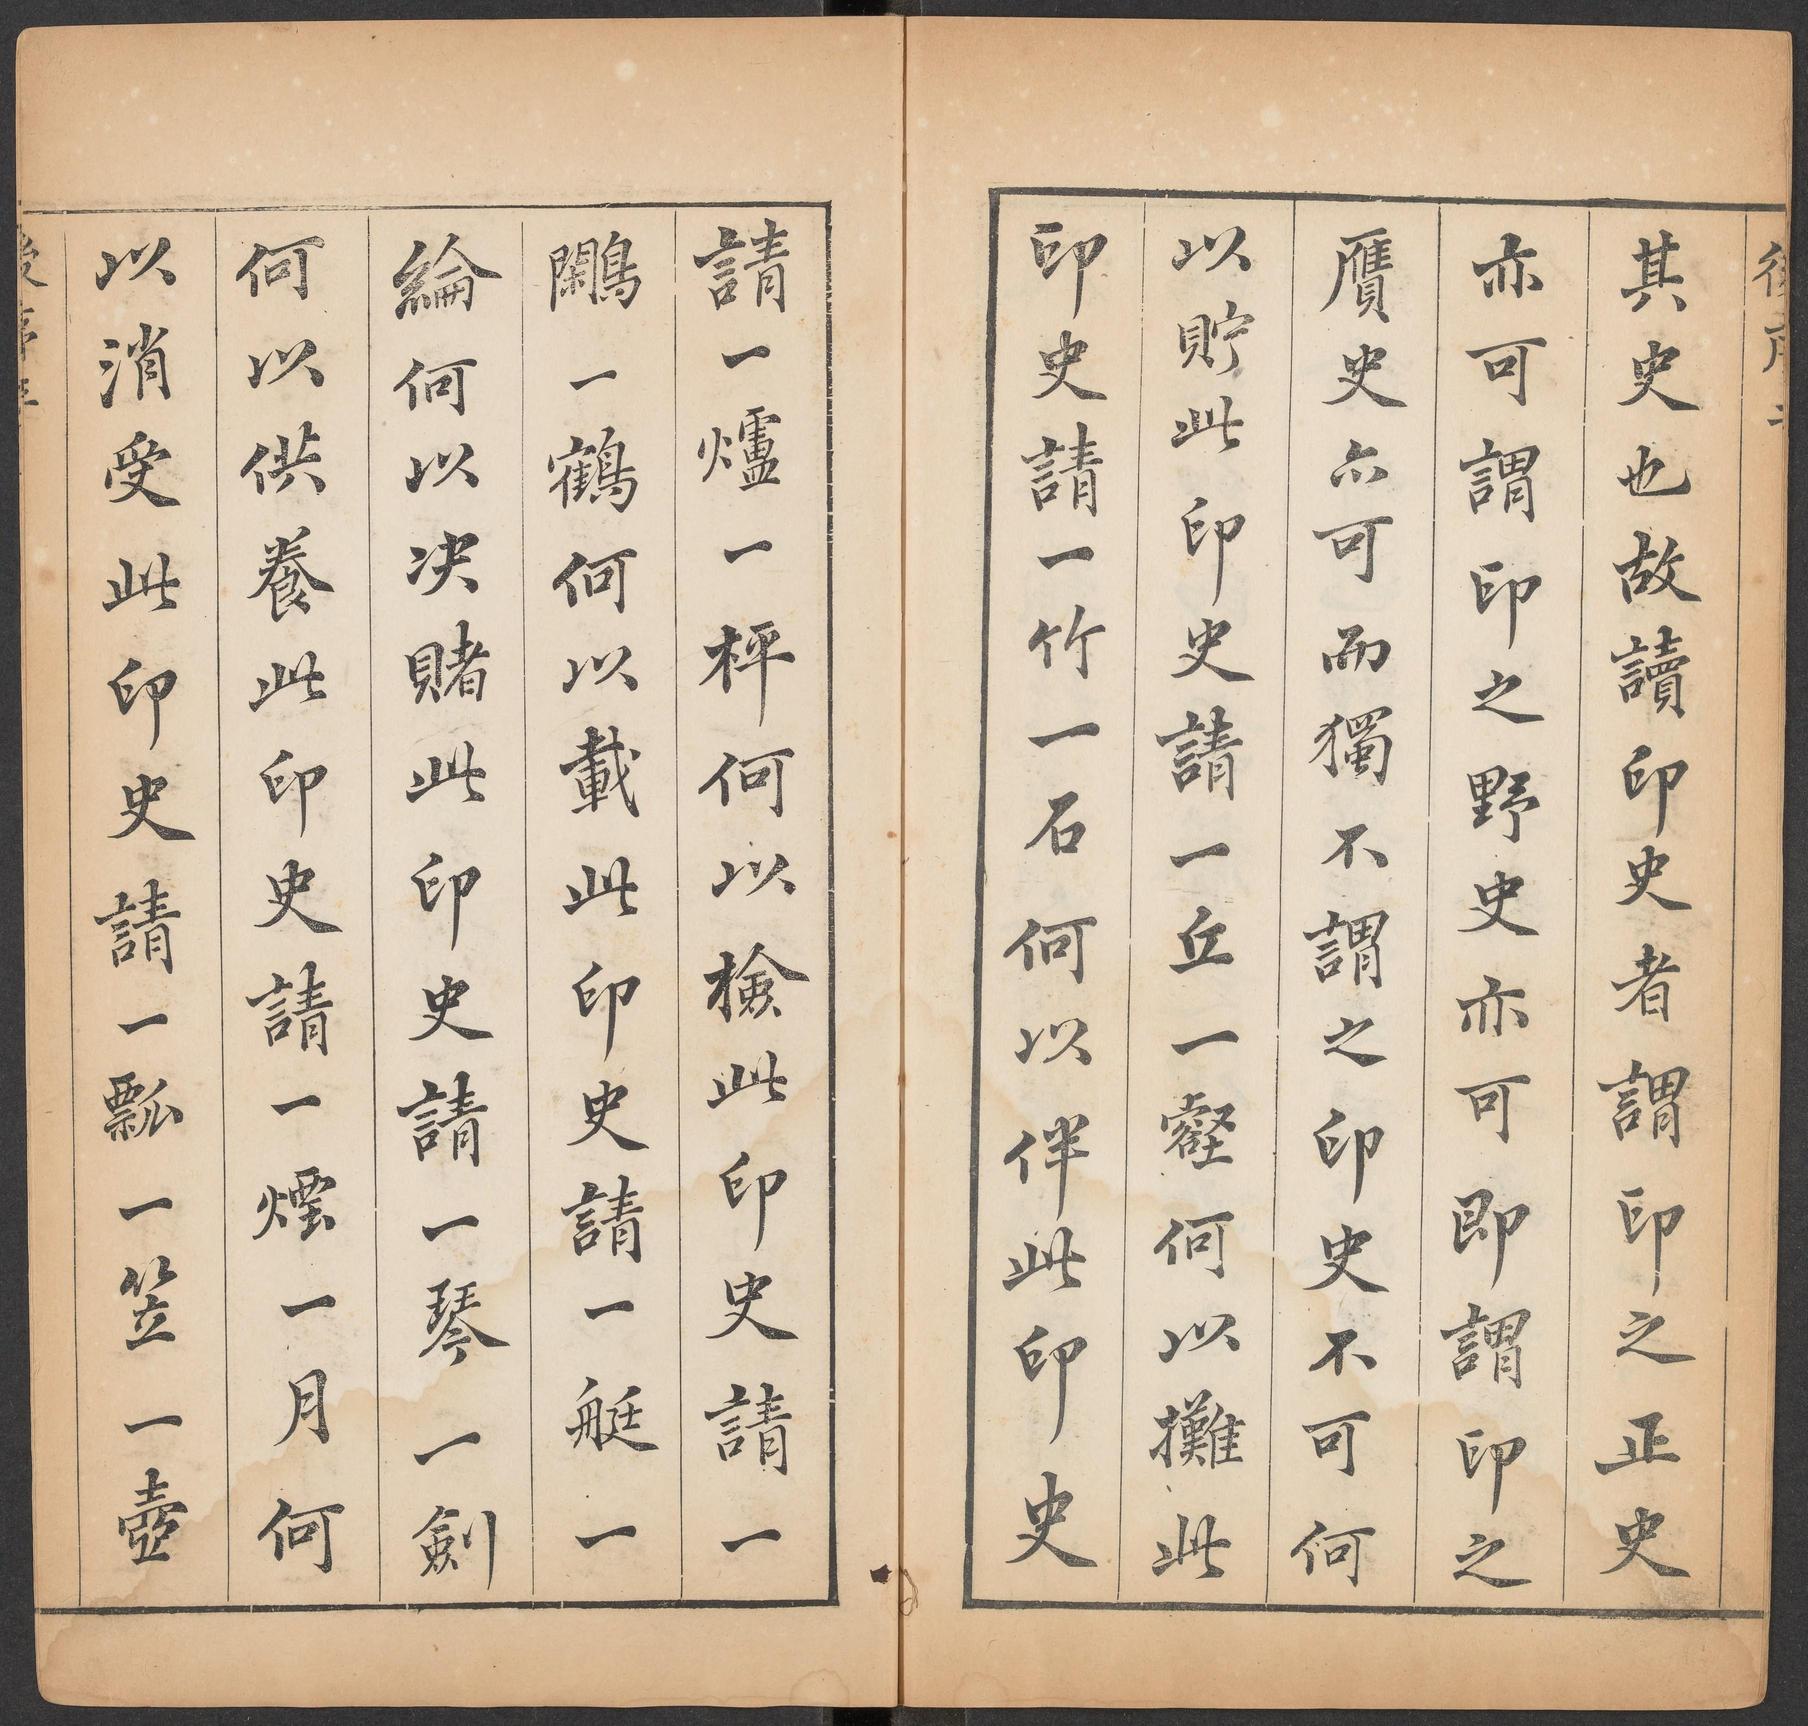 其史也故讀印史者謂印之正史
亦可謂印之野史亦可即謂印之
贗史亦可而獨不謂之印史不可何
以貯此印史請一丘一壑何以攤此
印史請一竹一石何以伴此印史
請一爐一枰何以檢此印史請一
鷳一鶴何以載此印史請一艇一
綸何以决賭此印史請一琴一劍
何以供養此印史請一煙一月何
以消受此印史請一瓢一笠一壺